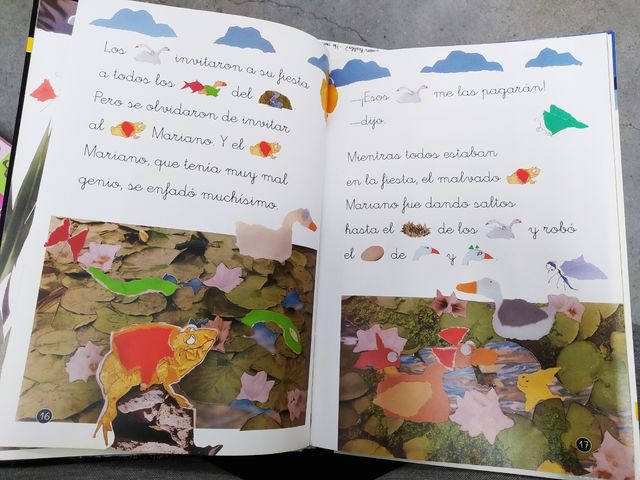 Los invitaron a su fiesta
a todos los del .
Pero se olvidaron de invitar
al Mariano. Y el
Mariano, que tenía muy mal
genio, se enfadó muchísimo.
16
—¡Esos me las pagarán!
—dijo.
Mientras todos estaban
en la fiesta, el malvado
Mariano fue dando saltos
hasta el de los y robó
el de y .
17